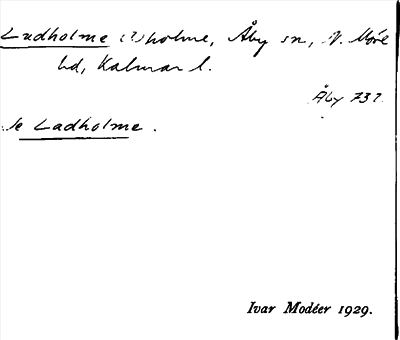 Ladholme (?) holme, Åby sn, N. Möre
hd, Kalmar l.
Åby 737.
Se Ladholme.
Ivar Modéer 1929.